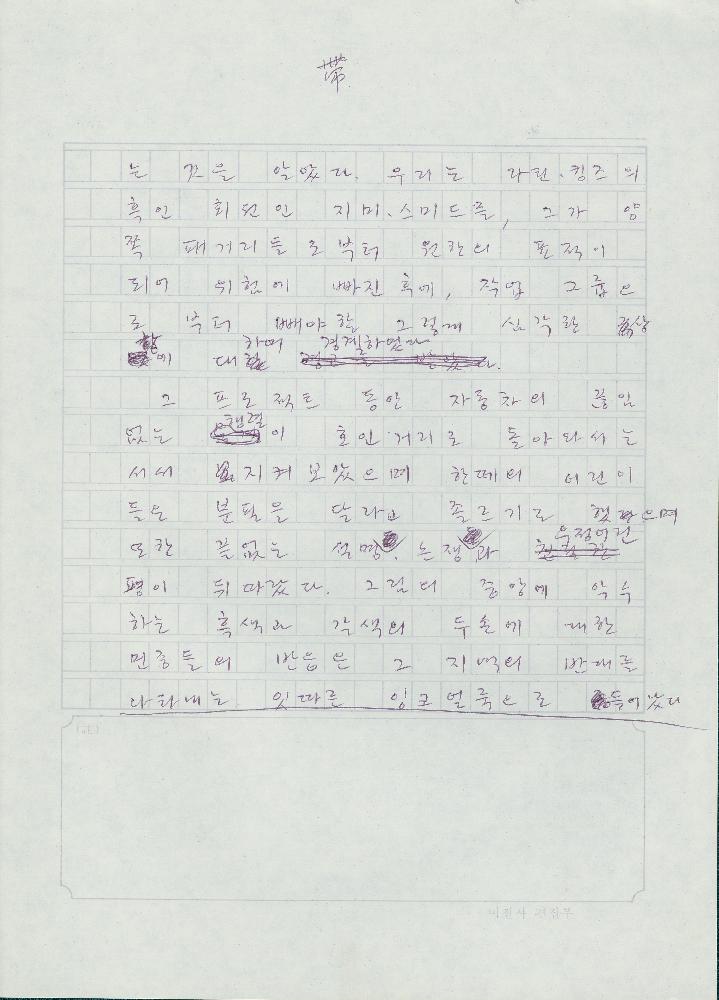 帶
는 것을 알았다. 우리는 라틴·킹즈의
흑인 회원인 지미·스미드를, 그가 양
쪽 패거리들로부터 원한의 표적이
되어 위험에 빠진 후에, 작업 그룹으
로 부터 빼야할 그렇게 심각한
에 대 하며 경계하였다.
그 프로젝트 동안 자동차의 끊임
없는 행렬이 호인·거리로 돌아와서는
서서 지켜보았으며 한떼의 어린이
들은 분필을 달라고 졸르기도 했으며
또한 끝없는 설명, 논쟁과 우정어린
평이 뒤따랐다. 그림의 중앙에 악수
하는 흑색과 갈색의 두손에 대한
민중들의 반응은 그 지역의 반대를
나타내는 잇따른 잉크얼룩으로 들어났다
비전사 편집부